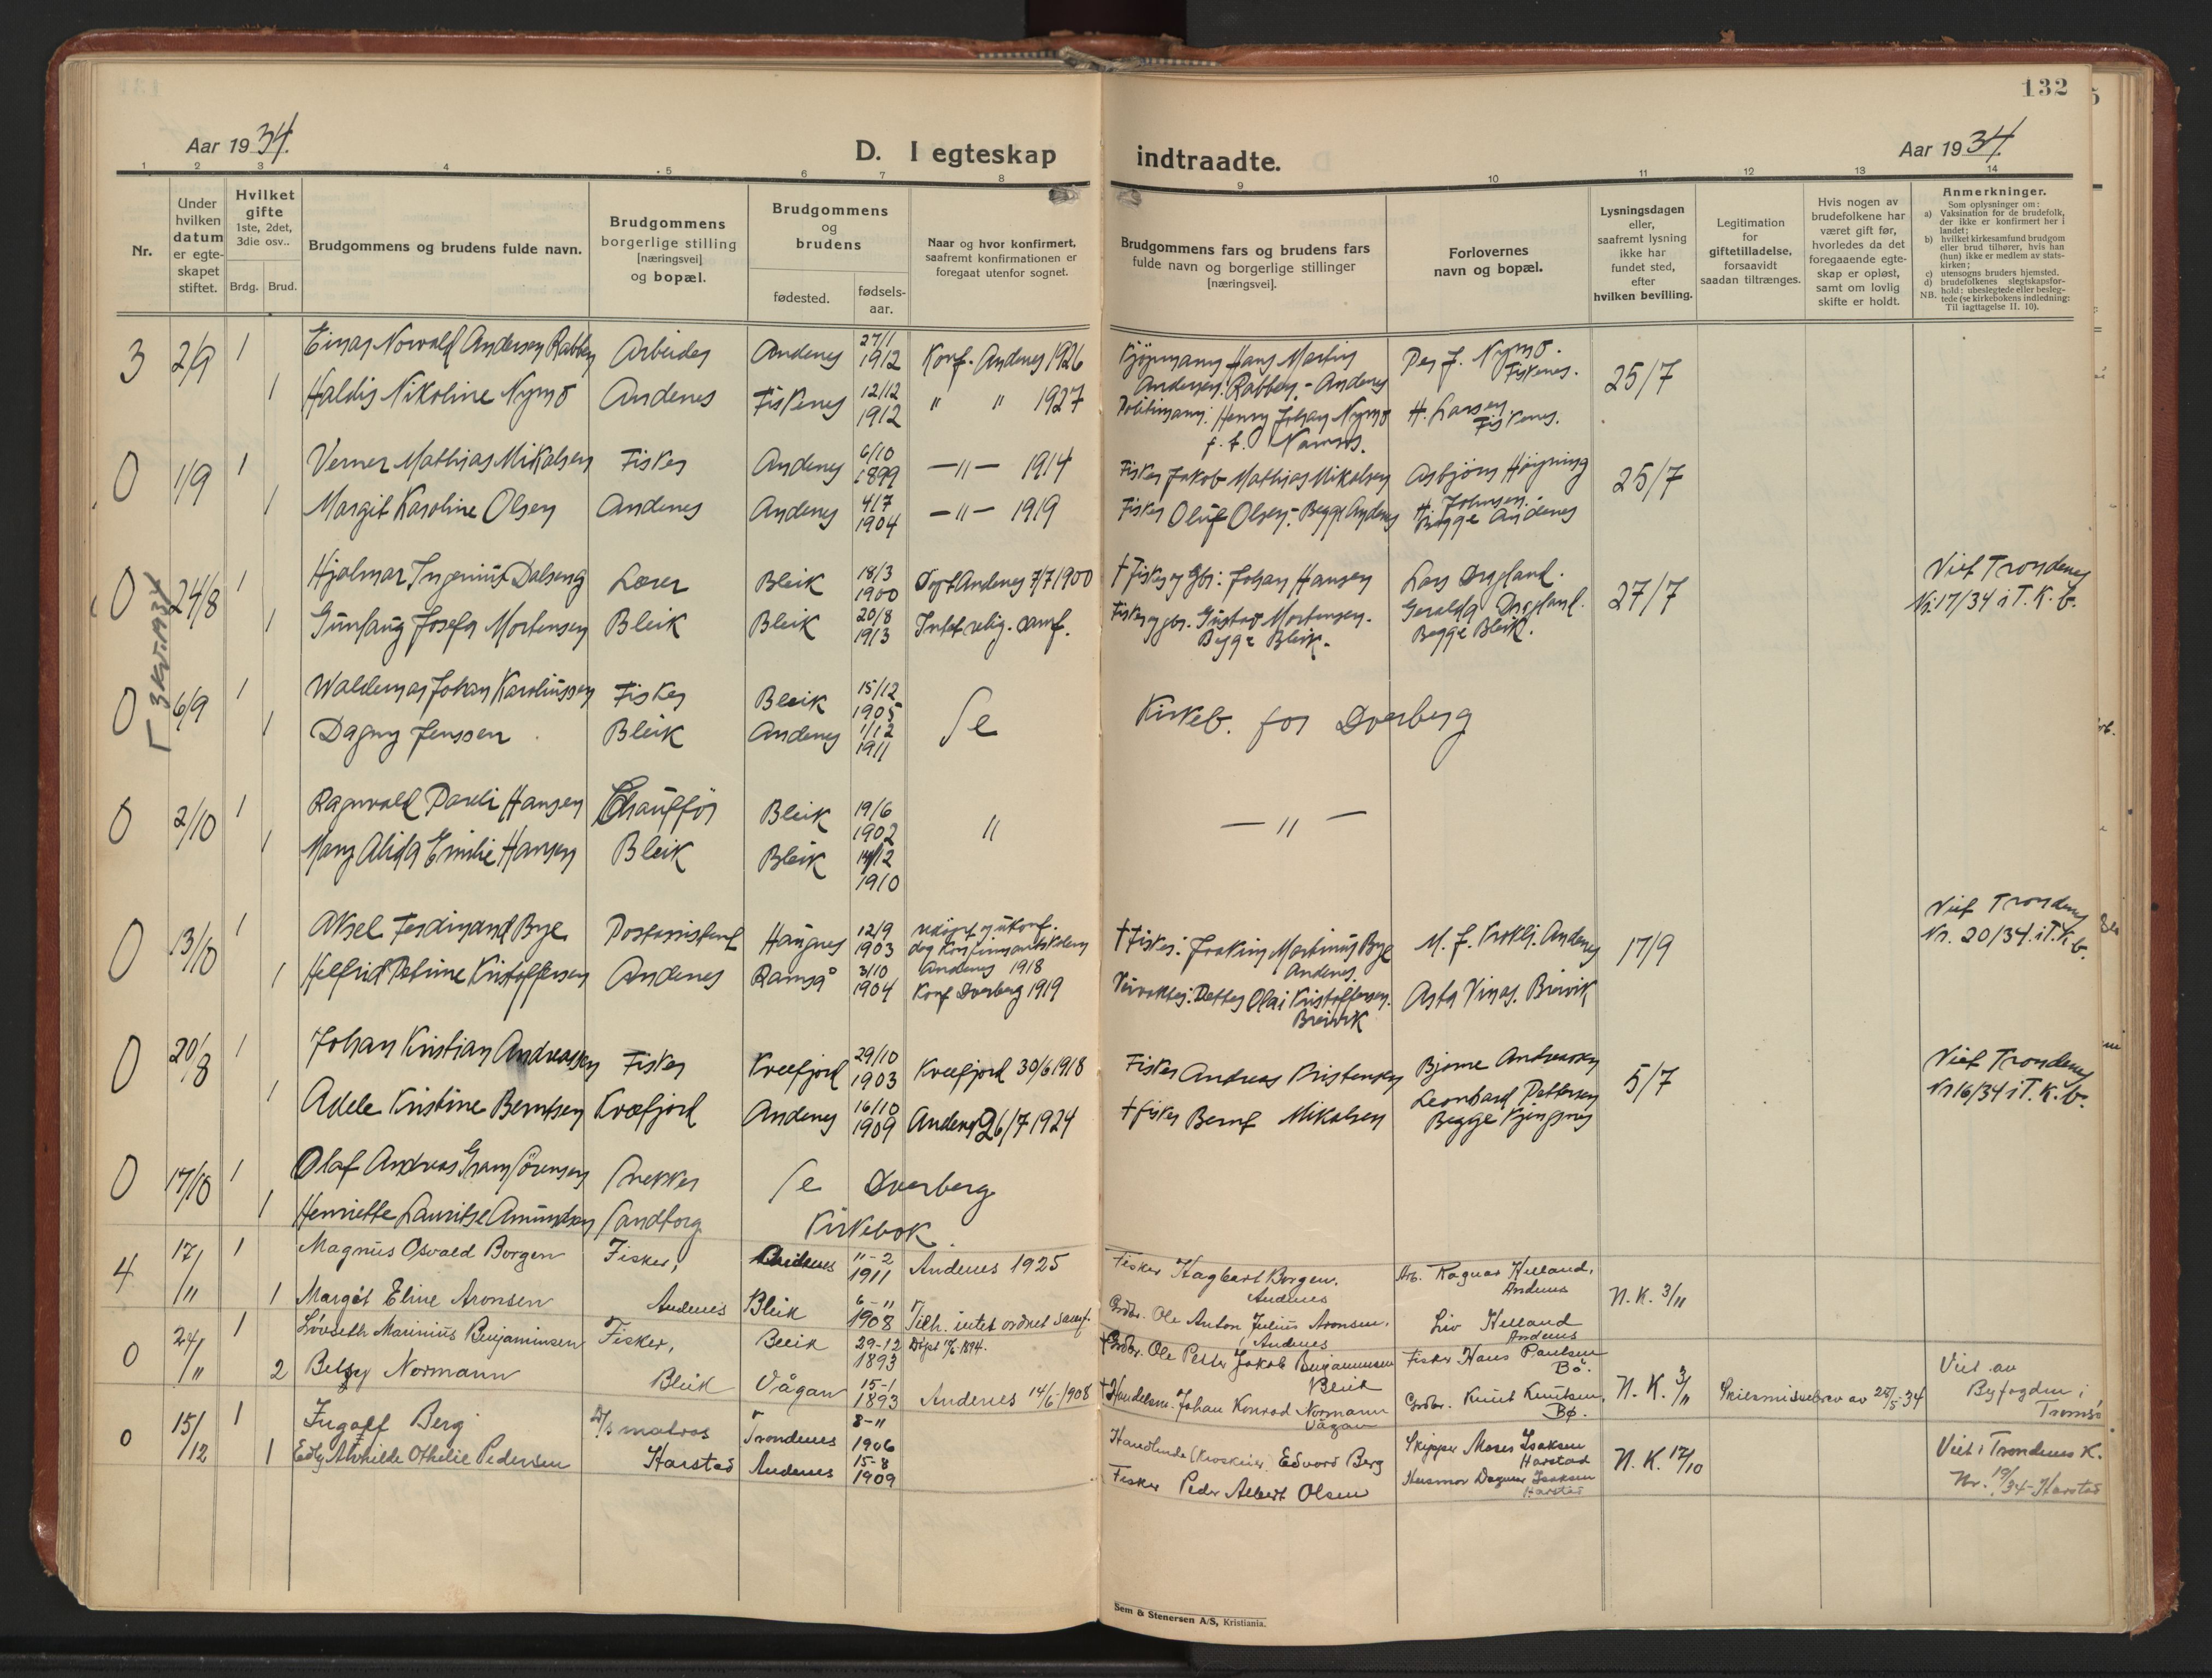 132
Aar 1934.
D. I egteskap indtraadte.
Aar 1934.
1 2 3 4 5 6 7 8 9 10 11 12 13 14
Nr.
Under hvilken datum er egte-skapet stiftet.
Hvilket gifte 1ste, 2det, 3die osv..
Brdg. Brud.
Brudgommens og brudens fulde navn.
Brudgommens borgerlige stilling [næringsvei] og bopæl.
Brudgommens og brudens
fødested. fødsels-aar.
Naar og hvor konfirmert, saafremt konfirmationen er foregaat utenfor sognet.
Brudgommens fars og brudens fars fulde navn og borgerlige stillinger [næringsvei].
Forlovernes navn og bopæl.
Lysningsdagen eller, saafremt lysning ikke har fundet sted, efter hvilken bevilling.
Legitimation for giftetilladelse, forsaavidt saadan tiltrænges.
Hvis nogen av brudefolkene har været gift før, hvorledes da det foregaaende egte-skap er opløst, samt om lovlig skifte er holdt.
Anmerkninger.
Som oplysninger om:
a) Vaksination for de brudefolk, der ikke er konfirmert her i landet;
b) hvilket kirkesamfund brudgom eller brud tilhører, hvis han (hun) ikke er medlem av stats-kirken;
c) utensogns bruders hjemsted.
d) brudefolkenes slegtskapsfor-hold: ubeslegtede eller besleg-
NB. tede (se kirkebokens indledning: Til iagttagelse II. 10).
3 2/9 1 Einar Norvald Andersen Rabben Arbeider Andenes 27/1 1912 Konf. Andenes 1926 Kjøpmann Hans Martin Andersen Rabben - Andenes Per J. Nymo. Fiskenes. 25/7
1 Haldis Nikoline Nymo Andenes Fiskenes 12/12 1912 " " 1927 Politimann: Henry Johan Nymo f. t. Namsos. H. Larsen Fiskenes.
0 1/9 1 Verner Mathias Mikalsen Fisker Andenes 6/10 1899 -"- 1914 Fisker Jakob Mathias Mikalsen Asbjørn Høyning 25/7
1 Margit Karoline Olsen Andenes Andenes 4/7 1904 -"- 1919 Fisker Oluf Olsen - Begge Andenes H. Johnsen. Begge Andenes
3 kv. 1934
0 24/8 1 Hjalmar Ingenius Dalseng Lærer Bleik 18/3 1900 Døpt Andenes 7/7 1900 † Fisker og gbr: Johan Hansen Lars Drygland. 27/7 Viet Trondenes Nr. 17/34 i T. K. b.
1 Gunlaug Josefa Mortensen Bleik Bleik 20/8 1913 Intet relig. samf. Fisker og gbr. Gustav Mortensen. Begge Bleik. Geralda Drygland. Begge Bleik.
0 6/9 1 Waldemar Johan Karoliussen Fisker Bleik 15/12 1905 Se Kirkeb. for Dverberg
1 Dagny Jenssen Bleik Andenes 1/12 1911
0 2/10 1 Ragnvald Pareli Hansen Chauffør Bleik 19/6 1902 " - " -
1 Mary Alida Emilie Hansen Bleik Bleik 14/12 1910
0 13/10 1 Aksel Ferdinand Bye Postassistent Haugnes 12/9 1903 udøpt og ukonf. dog Konfirmantskolen Andenes 1918 † Fisker: Joakim Martinus Bye Andenes. M. J. Krokli. Andenes 17/9 Viet Trondenes Nr. 20/34. i T. K. b.
1 Helfrid Petrine Kristoffersen Andenes Ramså 3/10 1904 Konf Dverberg 1919 Petter Olai Kristoffersen. Breivik Asta Vinas. Breivik
0 20/8 1 Johan Kristian Andreassen Fisker Kvæfjord 29/10 1903 Kvæfjord 30/6 1918 Fisker Andreas Kristensen Bjarne Andreassen 5/7 Viet Trondenes Nr 16/34 i T. K. b.
1 Adele Kristine Berntsen Kvæfjord Andenes 16/10 1909 Andenes 26/7 1924 † fisker Bernt Mikalsen Leonhard Pettersen Begge
0 17/10 1 Olaf Andreas Gram Sørensen Snekker Se Dverberg
1 Henriette Lauritse Amundsen Sandtorg Kirkebok.
4 17/11 1 Magnus Osvald Borgen Fisker, Andenes 11-2 1911 Andenes 1925 Fisker Hagbart Borgen. Andenes Arb. Ragnar Helland, Andenes N. K. 3/11
1 Margit Eline Aronsen Andenes Bleik 6-11 1908 Tilh. intet ordnet samf. Grdbr. Ole Anton Julius Aronsen, Andenes Liv Helland Andenes
0 24/11 1 Løvseth Marinius Benjaminsen Fisker, Bleik 29-12 1893 Døpt 17/6-1894. † Grdbr. Ole Petter Jakob Benjaminsen Bleik Fisker Hans Paulsen Bø. N. K. 3/11 Skilsmissebrev av 28/5-34 Viet av Byfogden i Tromsø
2 Betzy Normann Bleik Vågan 15-1 1893 Andenes 14/6-1908 † Handelsm. Johan Konrad Normann Vågan Grdbr. Knut Knutsen, Bø.
0 15/12 1 Ingolf Berg D/s matros Trondenes 8-11 1906 Handlende (Kioskeier) Edvard Berg Skipper Moses Isaksen Harstad N. K. 17/10 Viet i Trondenes K. Nr. 19/34 - Harstad
1 Edly Alvhilde Othelie Pedersen Harstad Andenes 15-8 1909 Fisker Peder Albert Olsen Husmor Dagmar Isaksen Harstad
Sem & Stenersen A/S, Kristiania.